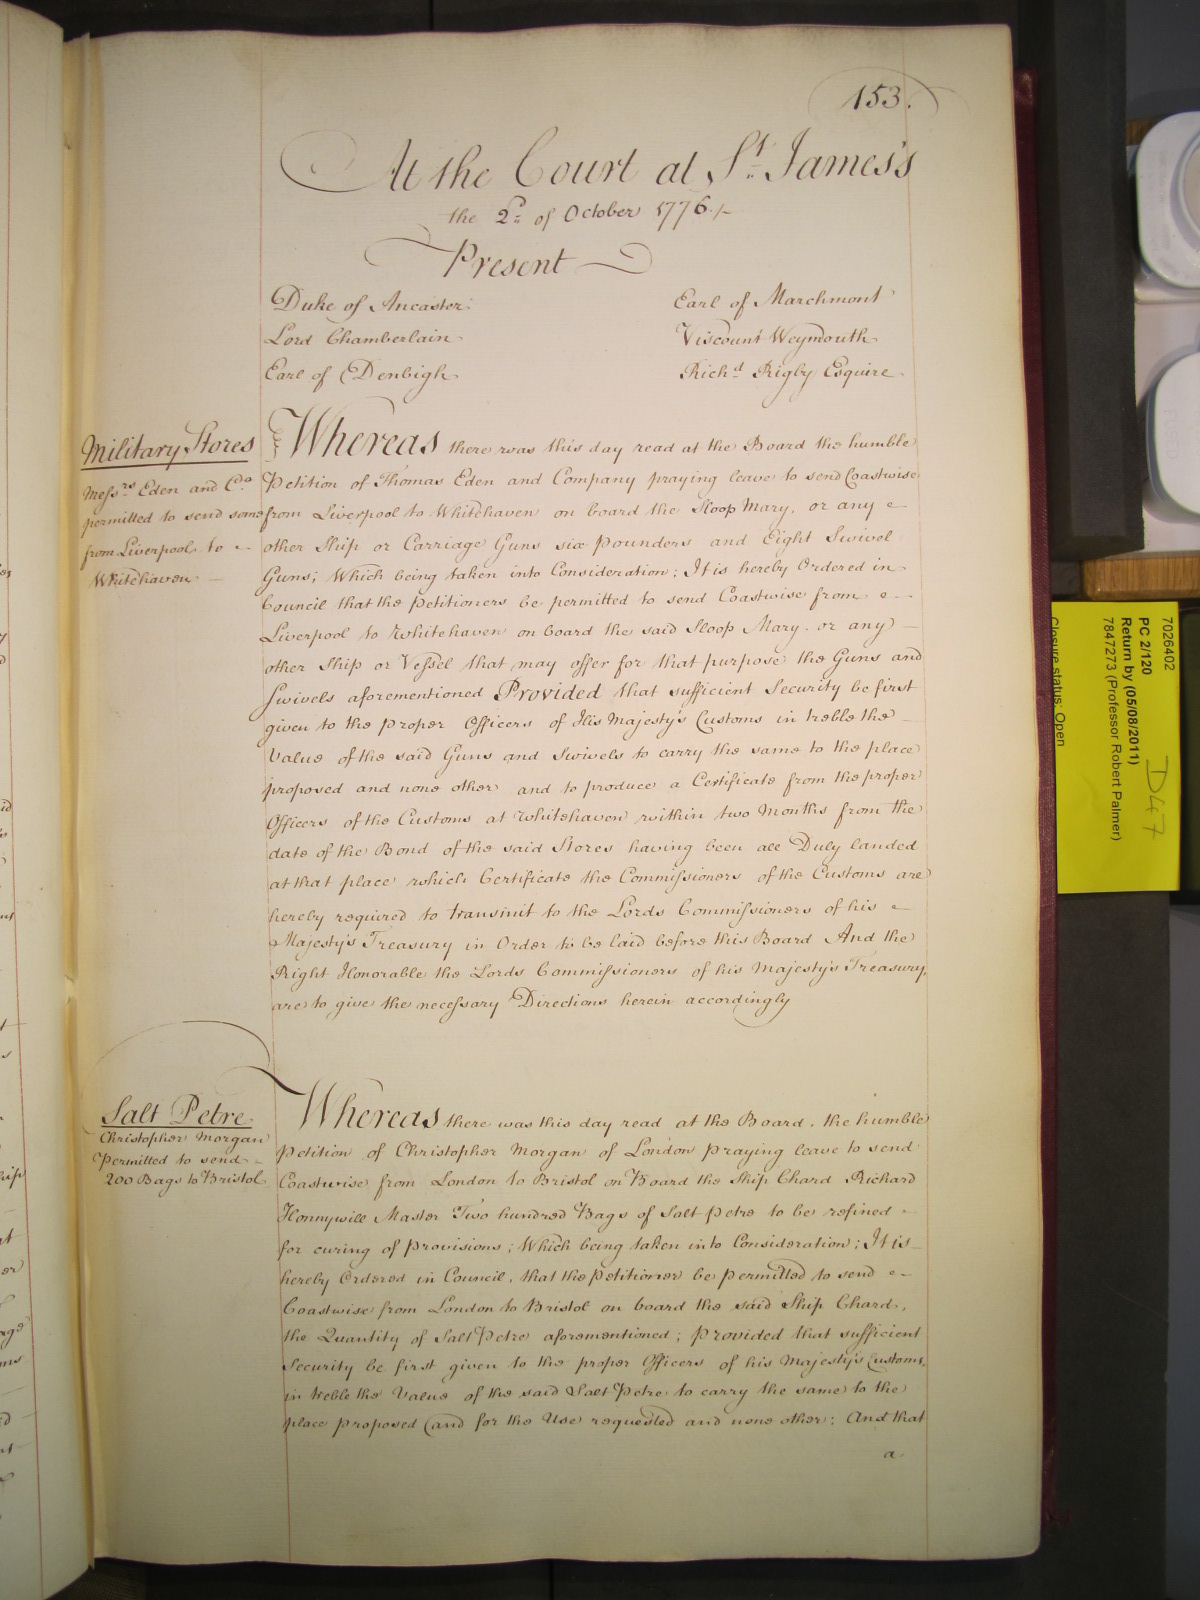 153.
At the Court at St. James's
the 2d. of October 1776./-
Present
Duke of Ancaster
Earl of Marchmont
Lord Chamberlain
Viscount Weymouth
Earl of Denbigh
Richd Rigby Esquire
Military Stores
Messrs Eden and Co.
permitted to send some
from Liverpool to
Whitehaven
Whereas there was this day read at the Board the humble
Petition of Thomas Eden and Company praying leave to send Coastwise
from Liverpool to Whitehaven on board the Sloop Mary, or any
other Ship or Carriage Guns six pounders and Eight Swivel
Guns; Which being taken into Consideration; It is hereby Ordered in
Council that the Petitioners be permitted to send Coastwise from
Liverpool to Whitehaven on board the said Sloop Mary or any
other Ship or Vessel that may offer for that purpose the Guns and
Swivels aforementioned Provided that sufficient Security be first
given to the proper Officers of His Majesty's Customs in treble the
Value of the said Guns and Swivels to carry the same to the place
proposed and none other and to produce a Certificate from the proper
Officers of the Customs at Whitehaven within two Months from the
date of the Bond of the said Stores having been all Duly landed
at that place which Certificate the Commissioners of the Customs are
hereby required to transmit to the Lords Commissioners of his
Majesty's Treasury in Order to be laid before this Board And the
Right Honorable the Lords Commissioners of his Majesty's Treasury,
are to give the necessary Directions herein accordingly
Salt Petre
Christopher Morgan
Permitted to send
200 Bags to Bristol
Whereas there was this day read at the Board, the humble
Petition of Christopher Morgan of London praying leave to send
Coastwise from London to Bristol on Board the Ship Chard Richard
Honnywill Master Two hundred Bags of Salt petre to be refined
for curing of Provisions; Which being taken into Consideration; It is
hereby Ordered in Council, that the Petitioner be permitted to send
Coastwise from London to Bristol on board the said Ship Chard,
the Quantity of Salt Petre aforementioned; provided that sufficient
Security be first given to the proper Officers of his Majesty's Customs,
in treble the Value of the said Salt Petre to carry the same to the
place proposed (and for the Use requested and none other: And that
a
7026402
PC 2/120
Return by (05/08/2011)
7847273 (Professor Robert Palmer)
Closure status: Open
D47